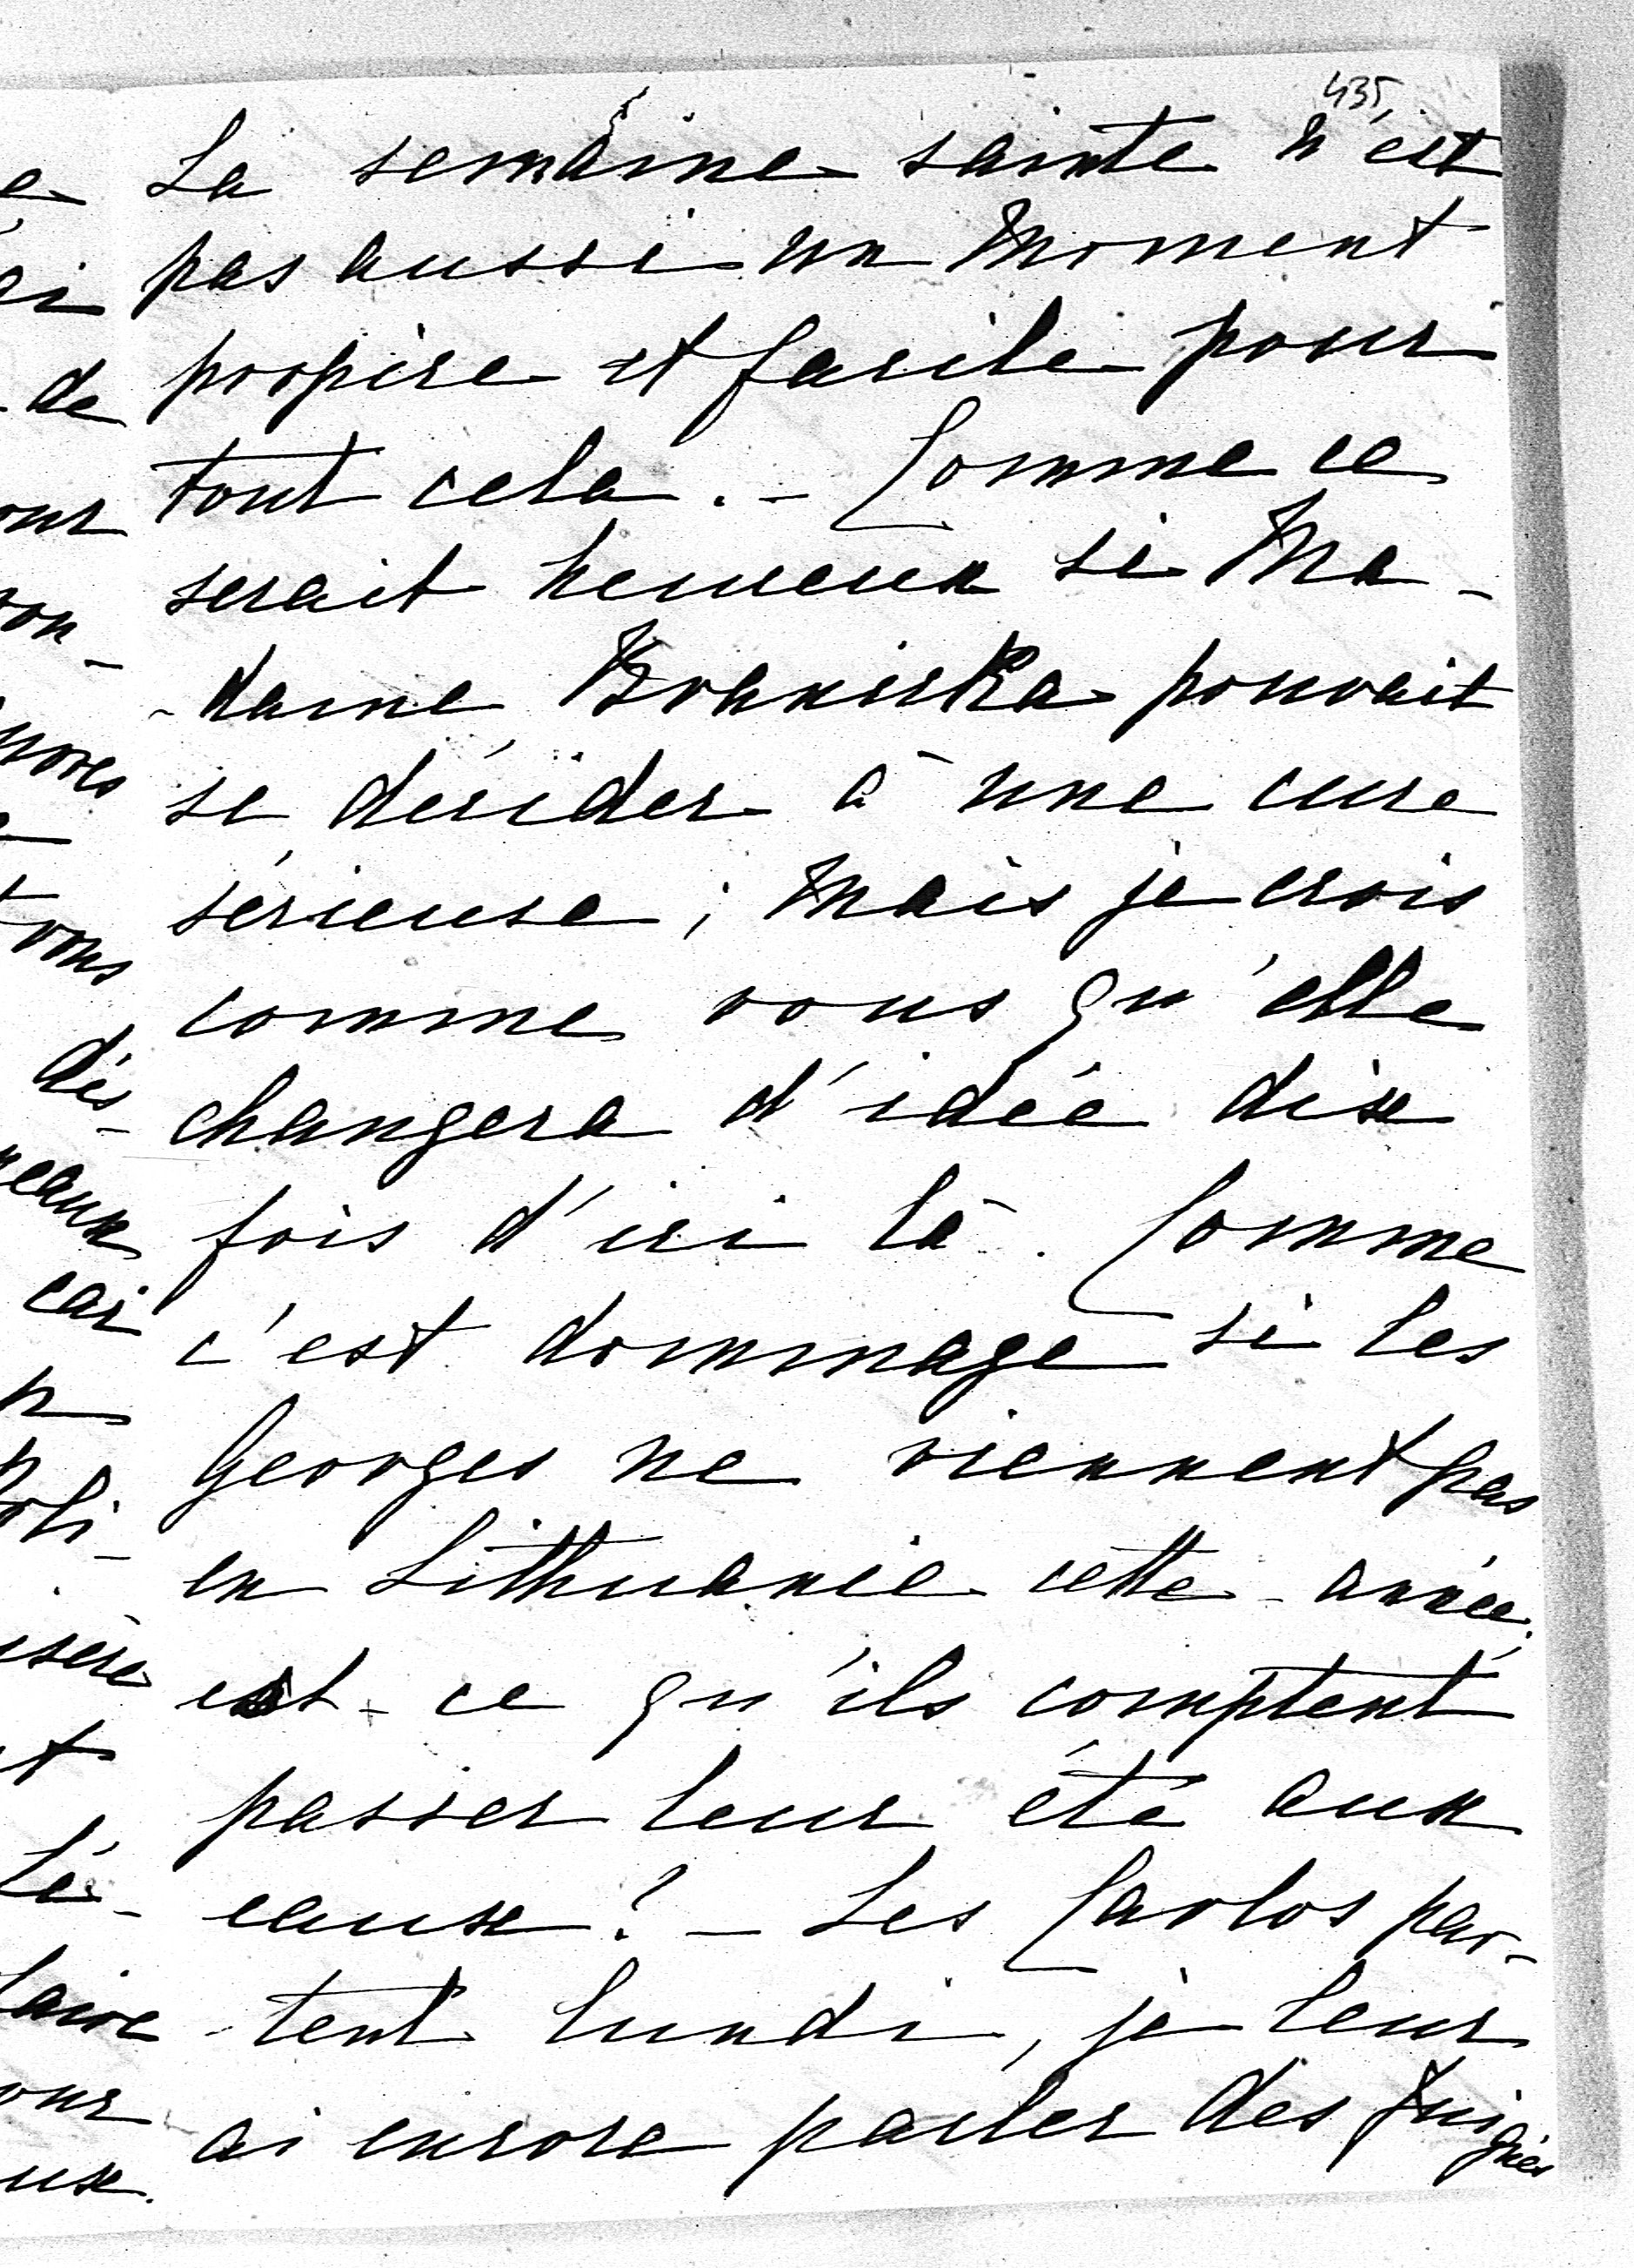 435
La semaine sainte n'est
pas aussi un moment
propice et facile pour
tout cela. - Comme ce
serait heureux si Ma-
-dame Braniska pouvait
se décider à une cure
sérieuse ; mais je crois
comme vous qu'elle
changera d'idée dix
fois d'ici là. Comme
c'est dommage si les
Georges ne viennent pas
en Lithuanie cette année.
est-ce qu'ils comptent
passer leur été aux
eaux? - Les Carlos par-
-tent lundi, je leur
ai encore parler des